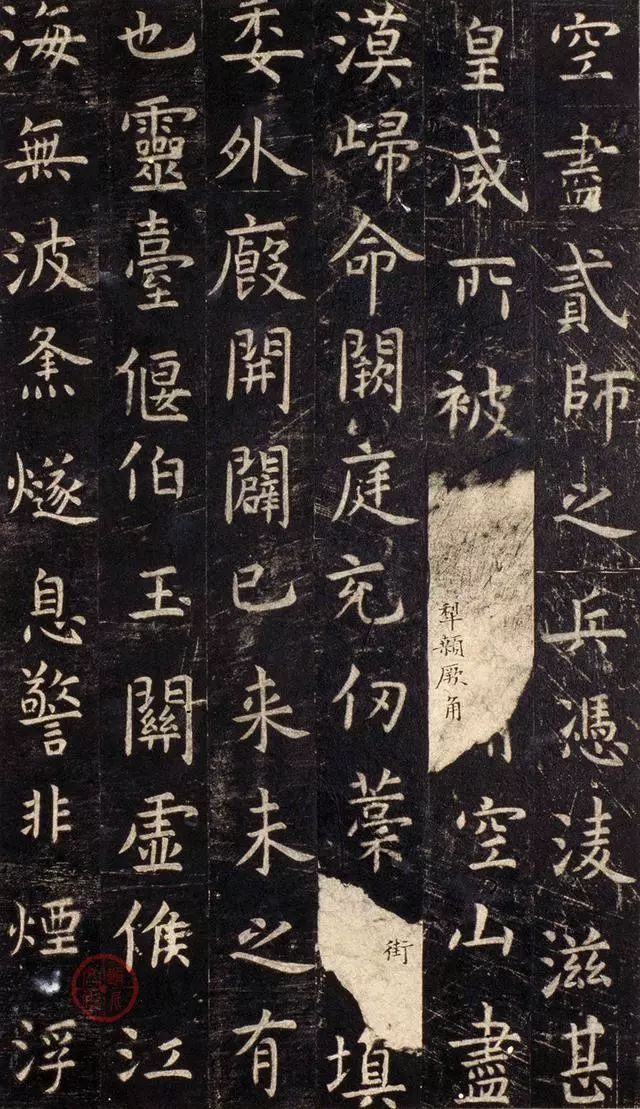 空盡貳師之兵憑淩滋甚
皇威所被犁顙厥角空山盡
漠歸命闕庭充仞藁街填
委外廄開闢已来未之有
也靈臺偃伯玉關虛候江
海無波㷭燧息警非煙浮